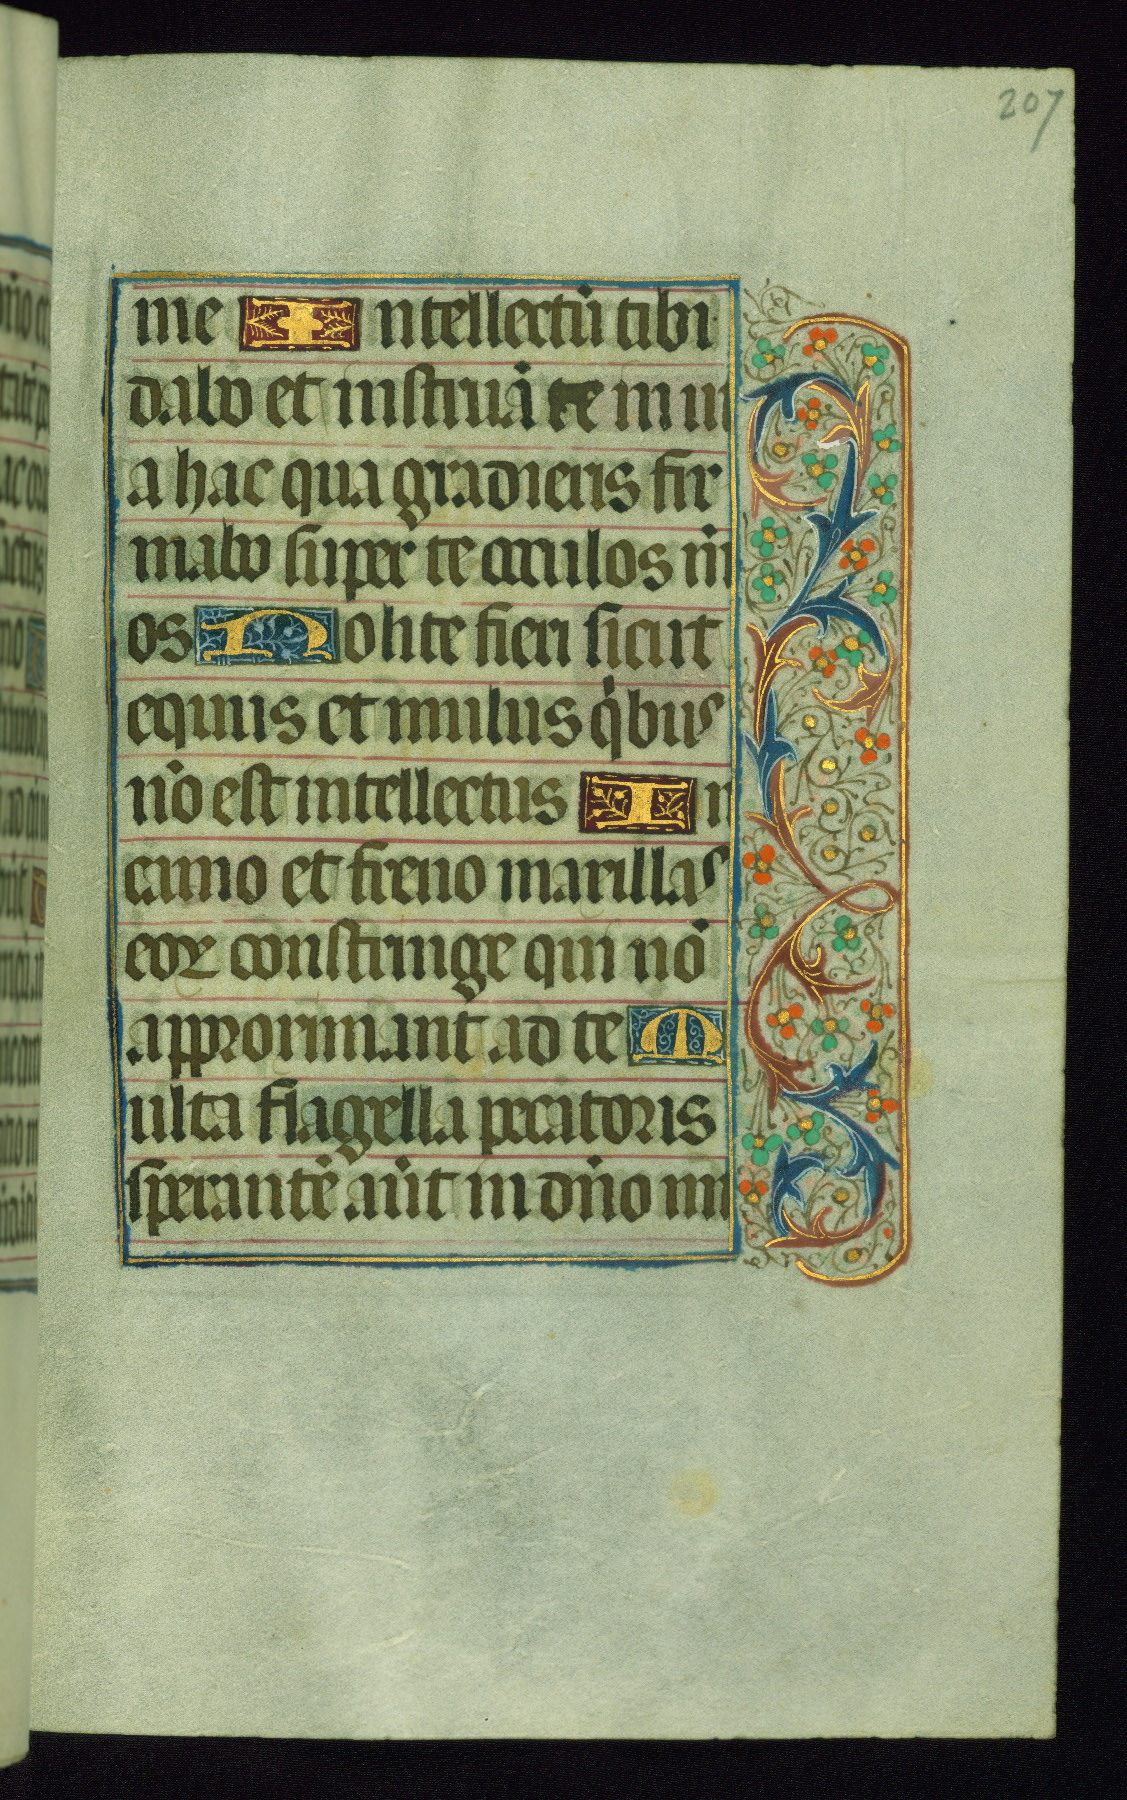 207
me Intellectū tibi
dabo et instruā te in ui
a hac qua gradieris fir
mabo super te oculos m̄
os Nolite fieri sicut
equus et mulus qͥbus
nō est intellectus In
camo et freno maxillas
eoꝝ constringe qui nō
approximant ad te M
ulta flagella peccatoris
sperantē aūt in dño mi